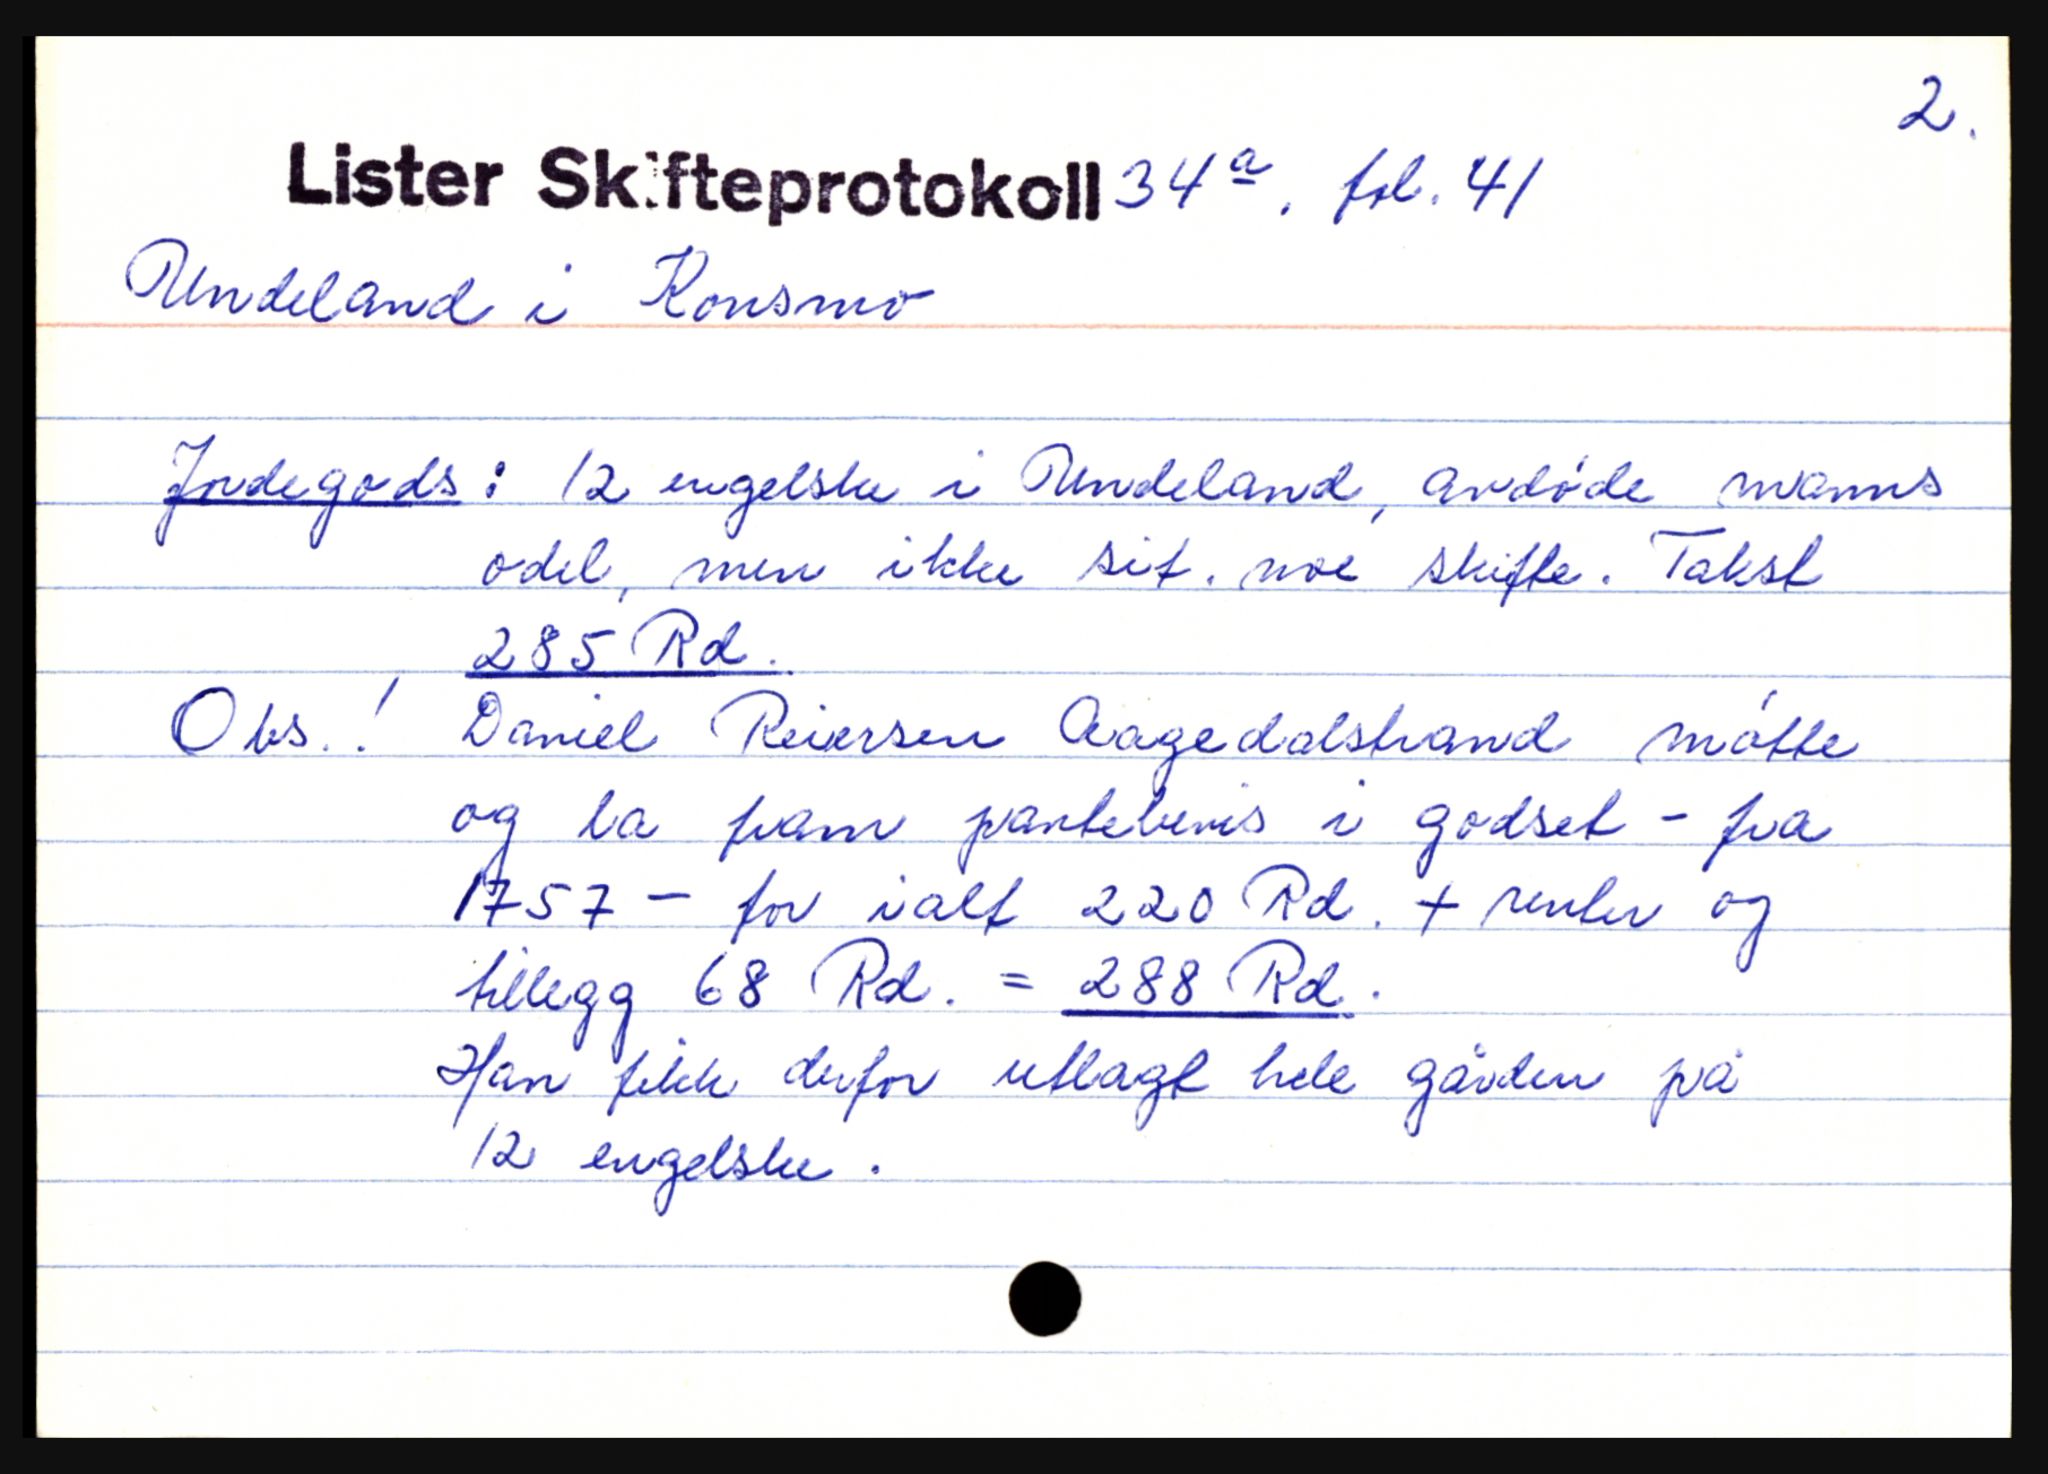 2.
Lister Skifteprotokoll 34a. fol. 41
Undeland i Konsmo
Jordegods: 12 engelske i Undeland, avdøde manns
odel, men ikke sit. noe skifte. Takst
285 Rd.
Obs.! Daniel Reiersen Aagedalstrand møtte
og la fram pantebevis i godset - fra
1757 - for ialt 220 Rd. + renter og
tillegg 68 Rd. = 288 Rd.
Han fikk derfor utlagt hele gården på
12 engelske.